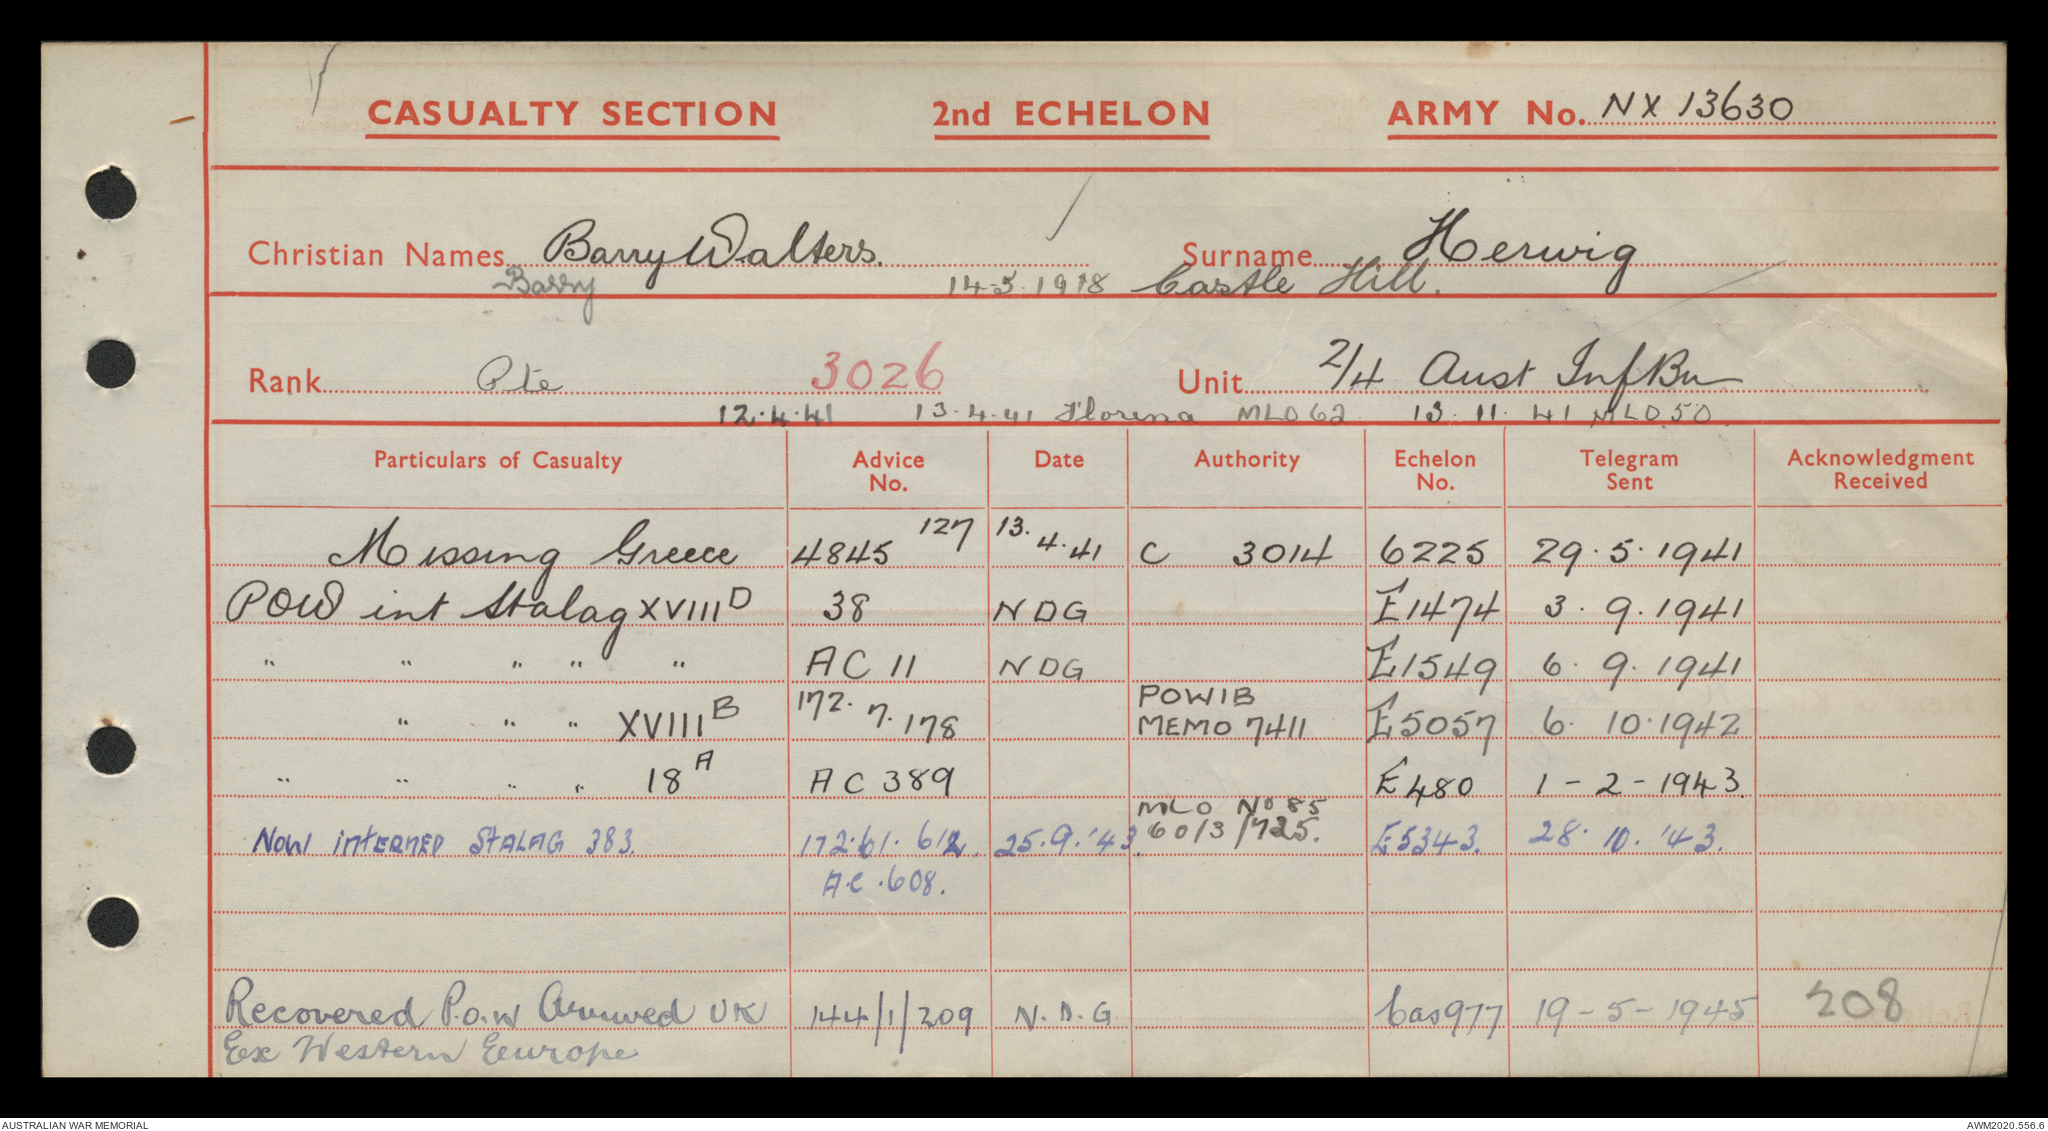 CASUALTY SECTION 2nd ECHELON ARMY No. NX 13630
Christian Names Barry Walters. Surname Herwig
Barry 14-5-1918 Castle Hill.
Rank Pte 3026 Unit 2/4 Aust Inf Bn
12.4.41 13.4.41 Florina MLO 62 13.11.41 MLO 50
Particulars of Casualty Advice No. Date Authority Echelon No. Telegram Sent Acknowledgment Received
Missing Greece 4845 127 13.4.41 C 3014 6225 29.5.1941
POW int Stalag XVIII D 38 NDG E1474 3.9.1941
" " " " " AC 11 NDG E1549 6.9.1941
" " " XVIII B 172.7.178 POWIB MEMO 7411 E5057 6.10.1942
" " " " 18 A AC 389 E480 1-2-1943
NOW INTERNED STALAG 383. 172.61.612. 25.9.'43 MLO No 85 60/3/725. E5343. 28.10.'43.
A.C.608.
Recovered P.o.W Arrived UK 144/1/209 N.D.G Cas977 19-5-1945 208
Ex Western Europe
AUSTRALIAN WAR MEMORIAL AWM2020.556.6